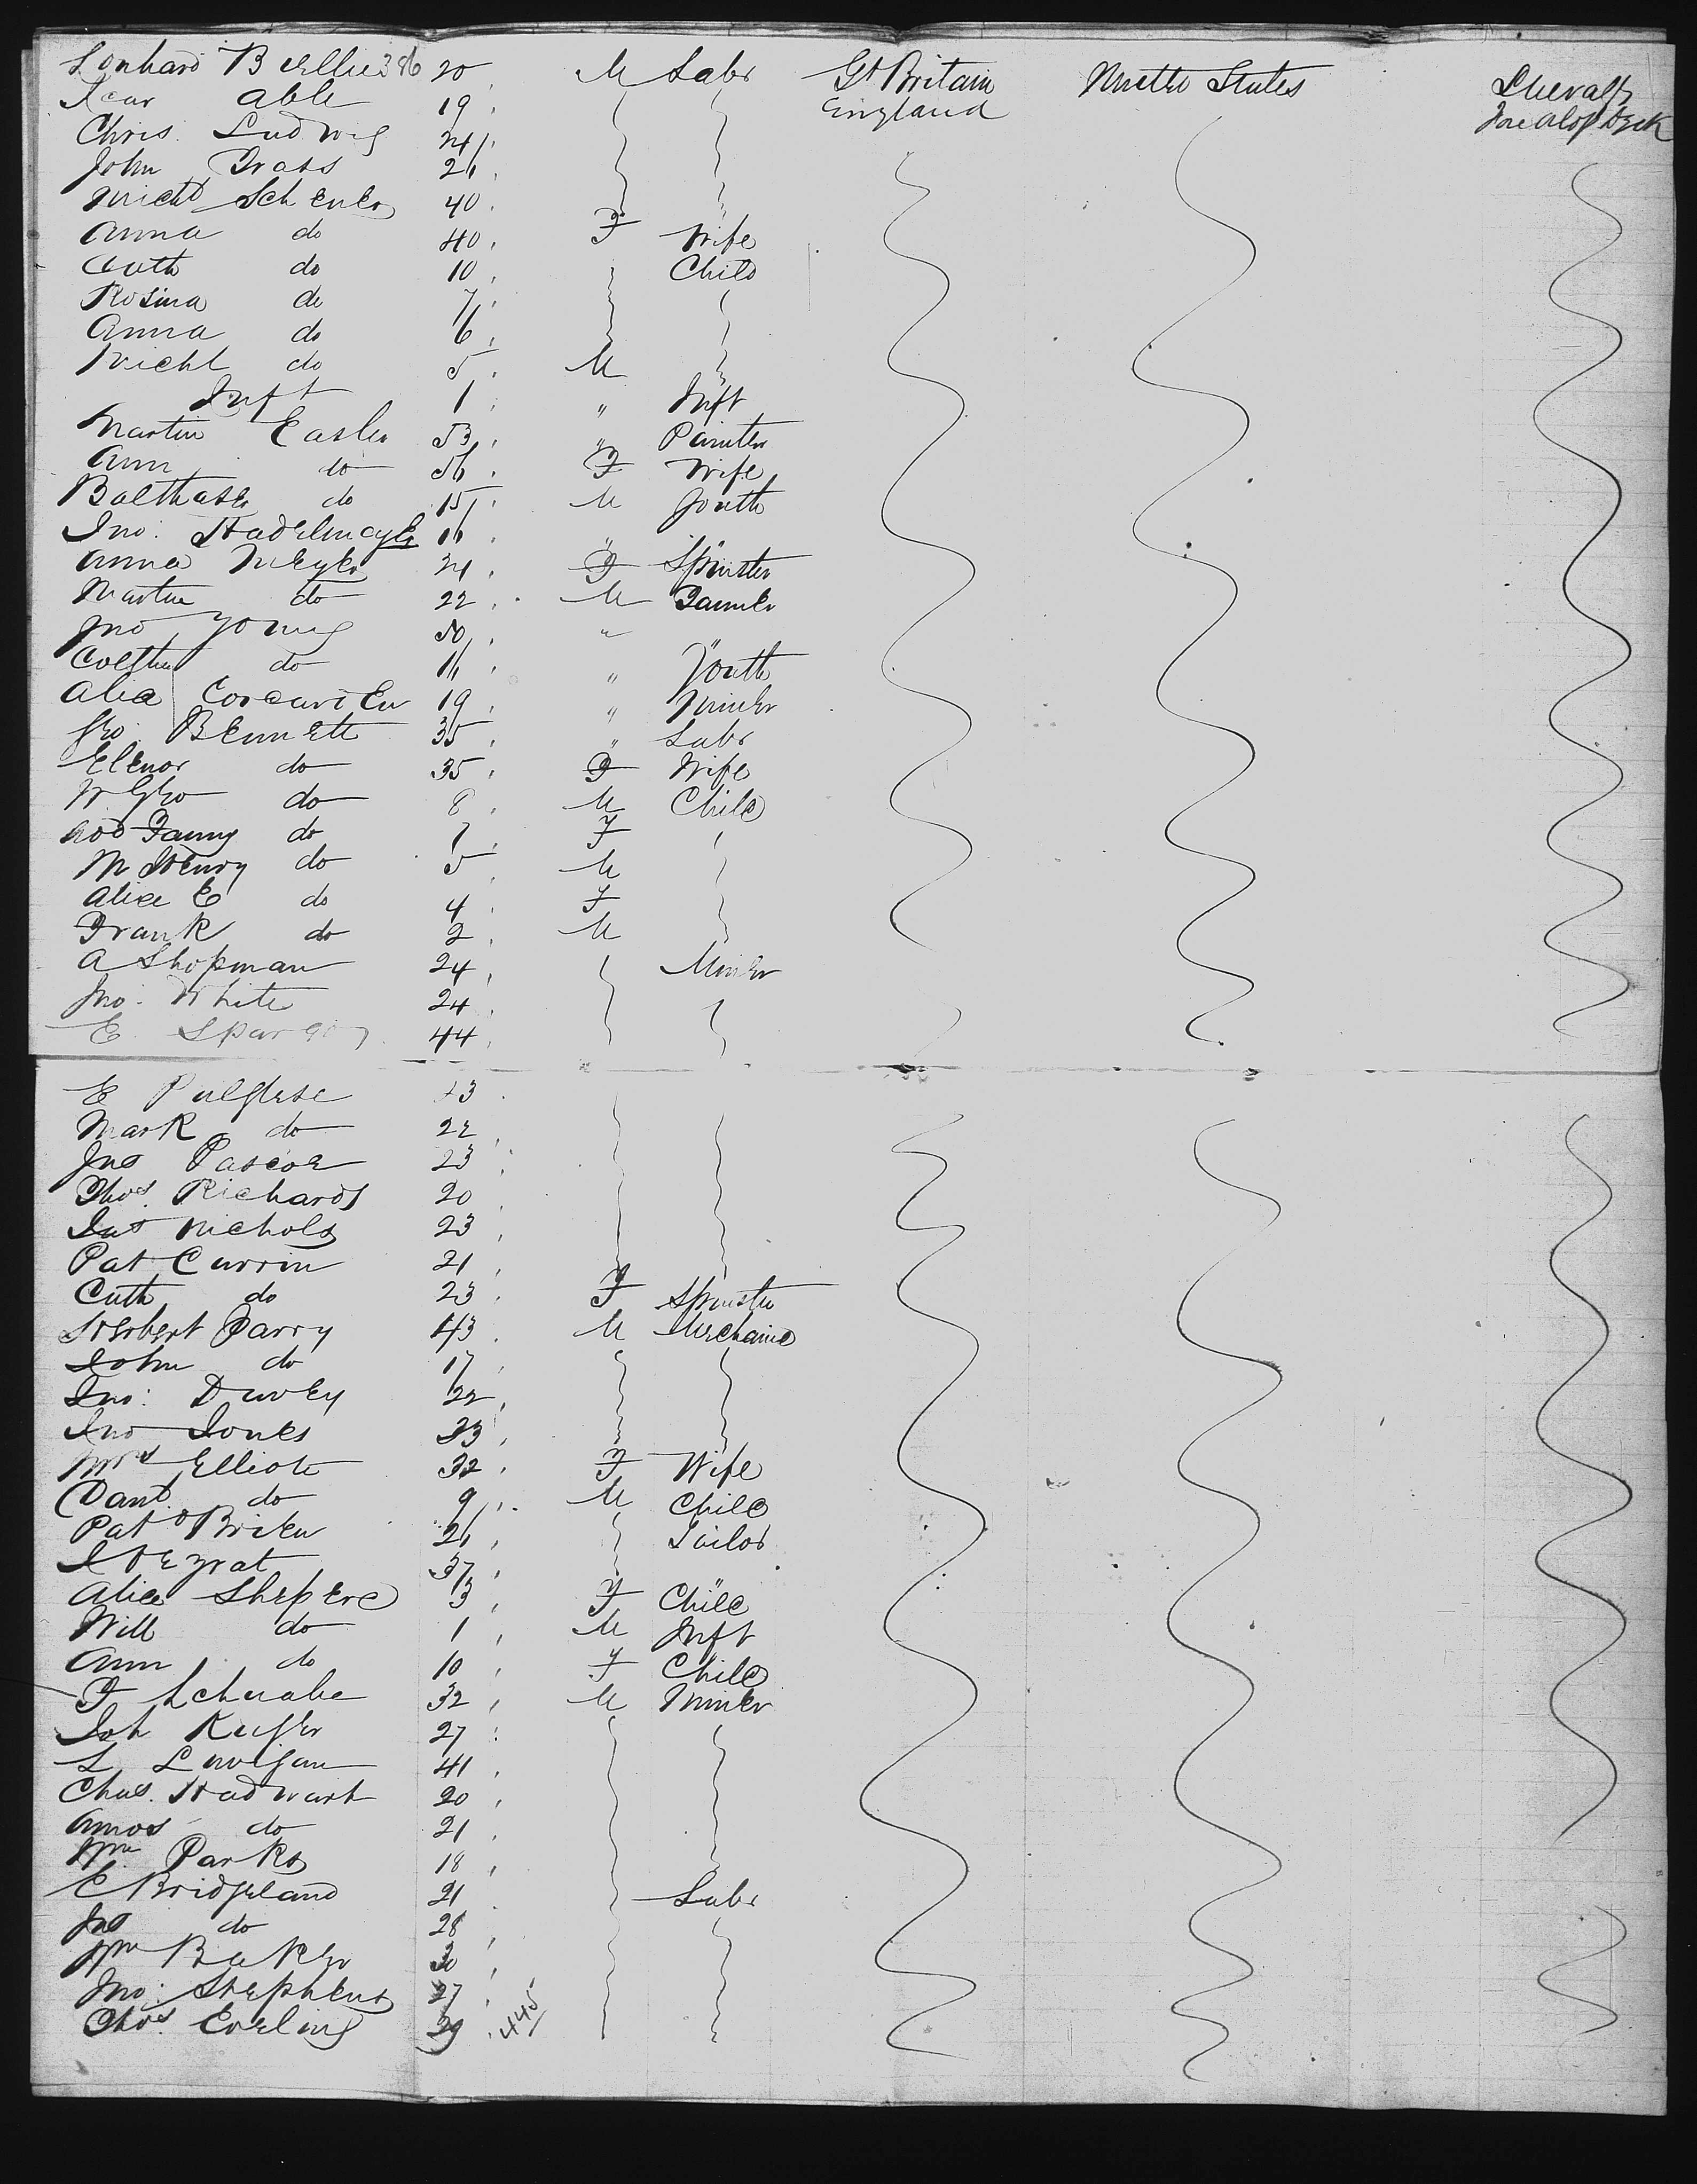 Lonhard Bellie 386 20 M Labr Gt Britain United States
Able 19 England
Chris Ludwig 24 Forealop Dyck
John Grass 26
Michl Schenker 40
Anna do 40 F Wife
Cath do 10 Child
Rosina do 7
Anna do 6
Michl do 5 M
Inft 1 " Inft
Martin Easler 53 " Painter
Ann do 56 F Wife
Balthaser do 15 M Youth
Jno: Hadelmayer 16 "
Anna Meyer 24 F Spinster
Martin do 22 M Farmer
Jno Young 50 "
do 16 " Youth
19 " Miner
Geo Bennett 35 " Labr
Elenor do 35 F Wife
W Geo do 8 M Child
Fanny do 7 F
M Henry do 5 M
Alice E do 4 F
Frank do 2 M
A Shopman 24 Miner
Jno. White 24
E Spargo 44
E Pulglese 23
Mark do 22
Jno Pascoe 23
Thos. Richards 20
Jas Nichols 23
Pat Currin 21
Cath do 23 F Spinster
Herbert Parry 43 M Mechanic
John do 17
Jno: Davey 22
Jno Jones 23
Mrs Elliote 32 F Wife
Danl. do 9 M Child
Pat O Brien 26 Tailor
37
Alice Sheperd 3 F Child
Will do 1 M Inft
Ann do 10 F Child
F Schwabe 32 M Miner
Joh Kiefer 27
L 41
Chas. Hadwart 20
Amos do 21
Wm Parks 18
E Bridgeland 21 Labr
Jno do 28
Wm Baker 30
Jno: Stephens 27
Thos. Eveling 39 445